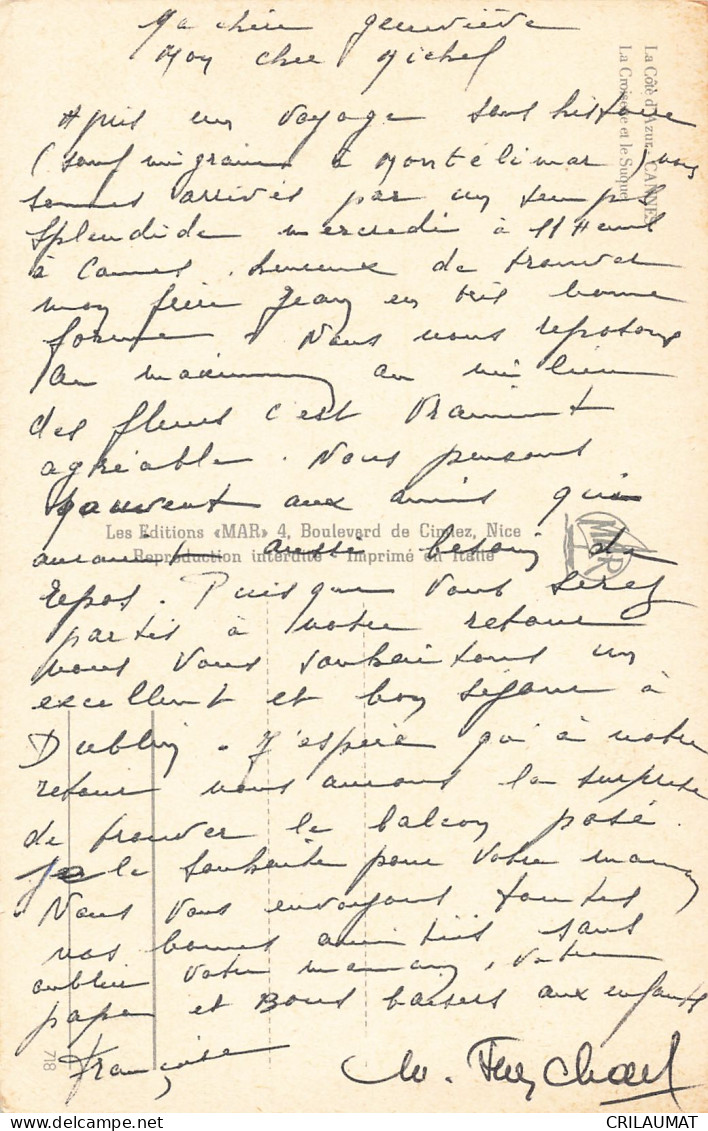 Ma chère Geneviève
Mon cher Michel
Après un voyage sans histoire
(sauf migraine à Montélimar) nous
sommes arrivés par un temps
splendide mercredi à 11 Heures
à Cannes. heureux de trouver
mon frère Jean en très bonne
forme. Nous nous reposons
au maximum au milieu
des fleurs c'est vraiment
agréable. Nous pensons
souvent aux amis qui
auraient aussi besoin de
repos. Puisque vous serez
partis à notre retour
nous vous souhaitons un
excellent et bon séjour à
Dublin. J'espère qu'à notre
retour nous aurons la surprise
de trouver le balcon posé.
Je le souhaite pour votre maman
Nous vous envoyons toutes
nos bonnes amitiés sans
oublier votre maman, votre
papa et Bons baisers aux enfants
Françoise
La Côte d'Azur - CANNES
La Croisette et le Suquet
Les Editions «MAR» 4, Boulevard de Cimiez, Nice
Reproduction interdite - Imprimé en Italie
MAR
718
CRILAUMAT